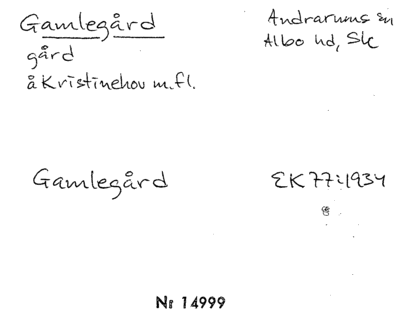 Gamlegård
Andrarums sn
Albo hd, Sk
gård
å Kristinehov m.fl.
Gamlegård
EK 77:1934
Nr 14999